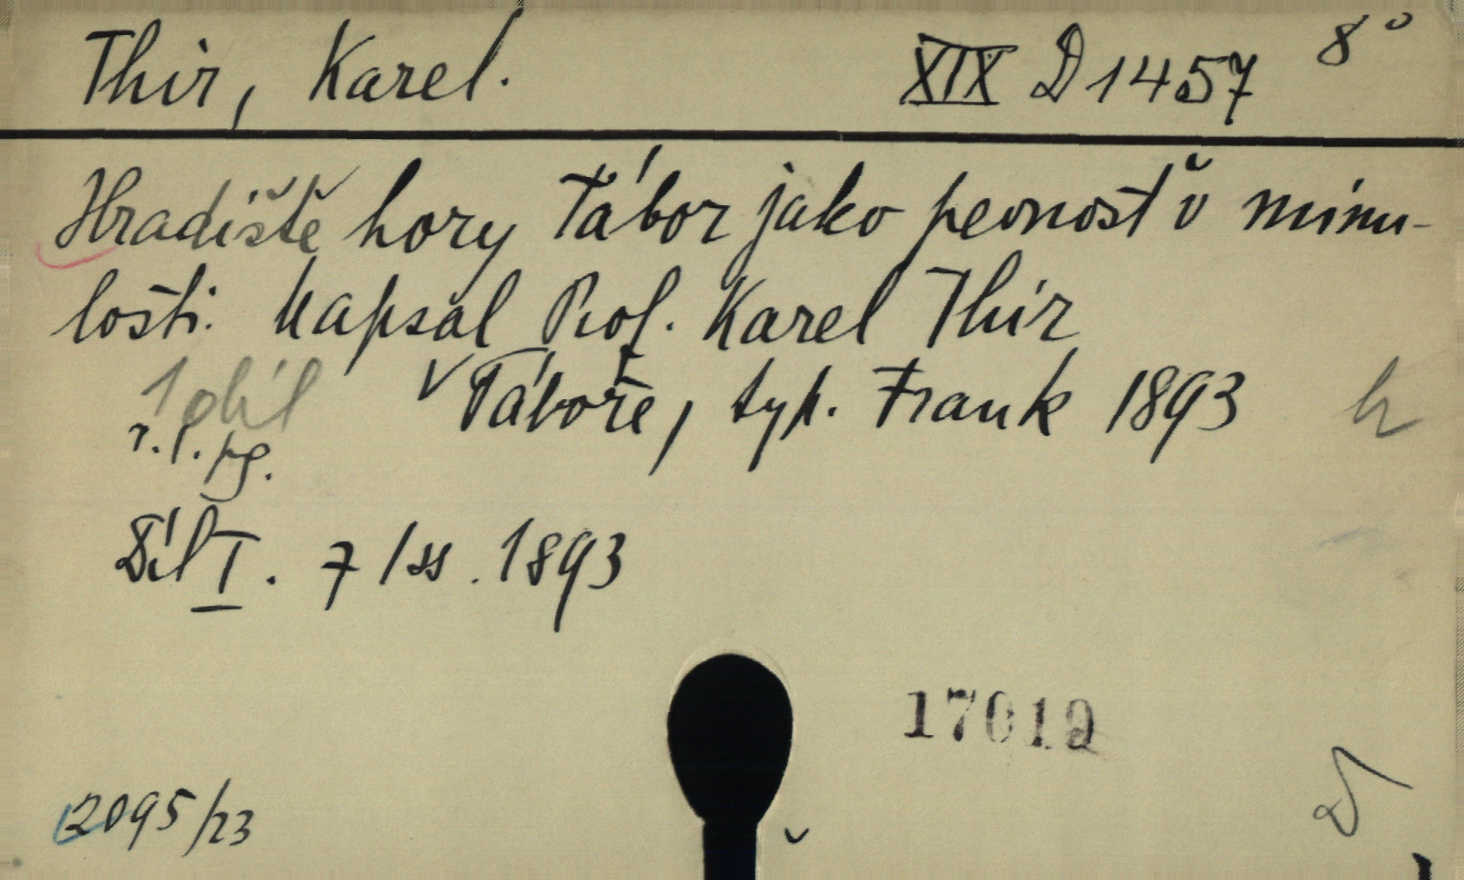 Thir, Karel. XIX D 1457 8°
Hradiště hory Tábor jako pevnost v minu-
losti. Napsal Prof. Karel Thir
1 díl V Táboře, typ. Frank 1893
r. l. pg.
Díl I. 7 1893
17019
2095/23